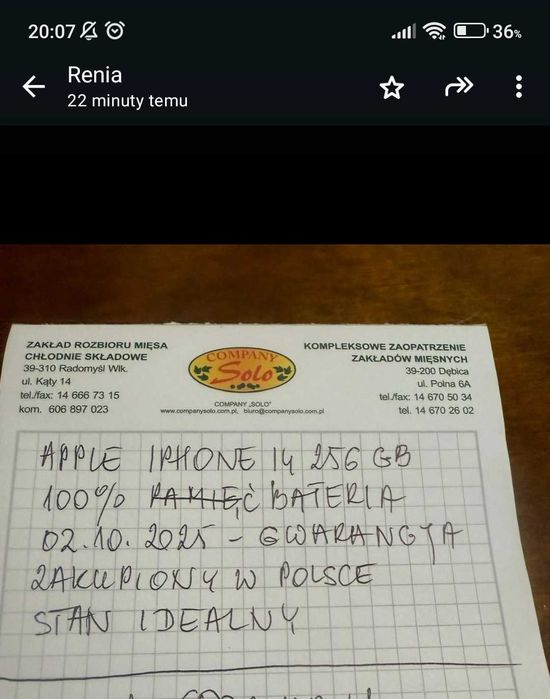 20:07 36%
Renia
22 minuty temu
ZAKŁAD ROZBIORU MIĘSA
CHŁODNIE SKŁADOWE
39-310 Radomyśl Wlk.
ul. Kąty 14
tel./fax: 14 666 73 15
kom. 606 897 023
COMPANY
Solo
COMPANY „SOLO”
www.companysolo.com.pl, biuro@companysolo.com.pl
KOMPLEKSOWE ZAOPATRZENIE
ZAKŁADÓW MIĘSNYCH
39-200 Dębica
ul. Polna 6A
tel./fax: 14 670 50 34
tel. 14 670 26 02
APPLE IPHONE 14 256 GB
100% PAMIĘĆ BATERIA
02.10.2025 - GWARANCJA
ZAKUPIONY W POLSCE
STAN IDEALNY